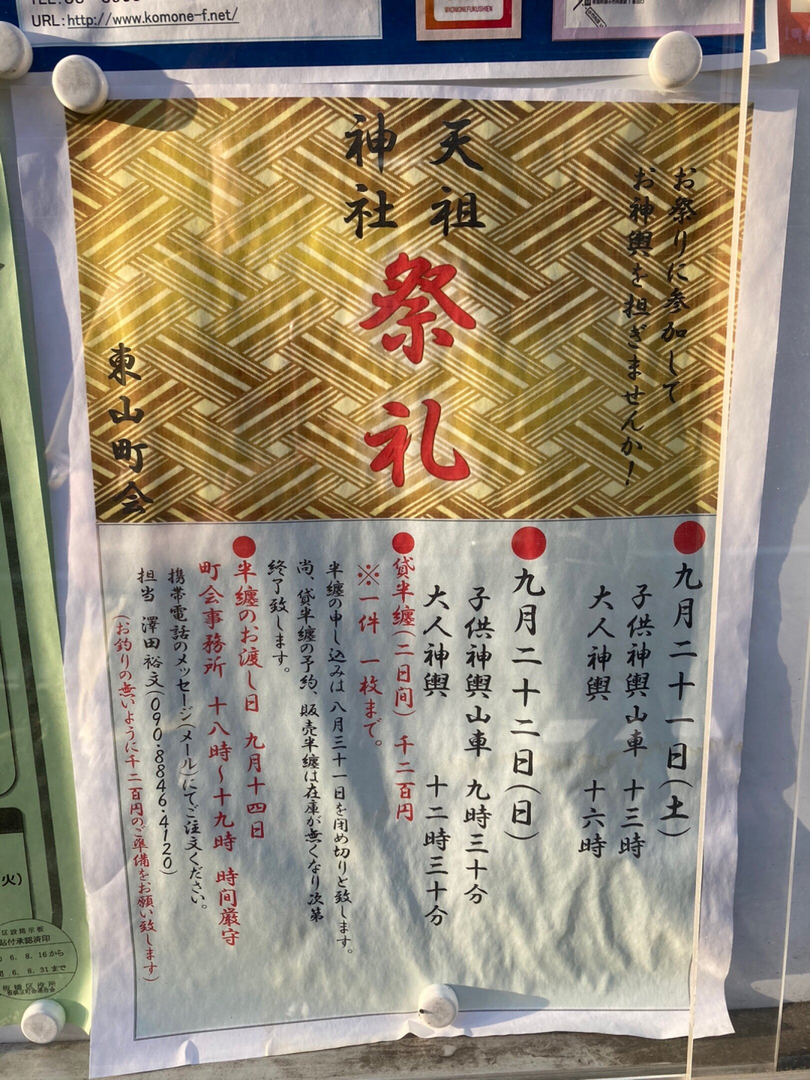 URL:http://www.komone-f.net/
お祭りに参加して
お神輿を担ぎませんか!
天祖
神社
祭礼
東山町会
●九月二十一日(土)
子供神輿山車 十三時
大人神輿 十六時
●九月二十二日(日)
子供神輿山車 九時三十分
大人神輿 十二時三十分
●貸半纏(二日間)千二百円
※一件 一枚まで。
半纏の申し込みは八月三十一日を閉め切りと致します。
尚、貸半纏の予約、販売半纏は在庫が無くなり次第
終了致します。
●半纏のお渡し日 九月十四日
町会事務所 十八時~十九時 時間厳守
携帯電話のメッセージ(メール)にてご注文ください。
担当 澤田裕文(090.8846.4120)
(お釣りの無いように千二百円のご準備をお願い致します)
火)
区設掲示板
貼付承認済印
6. 8.16から
6. 8.31まで
板橋区役所